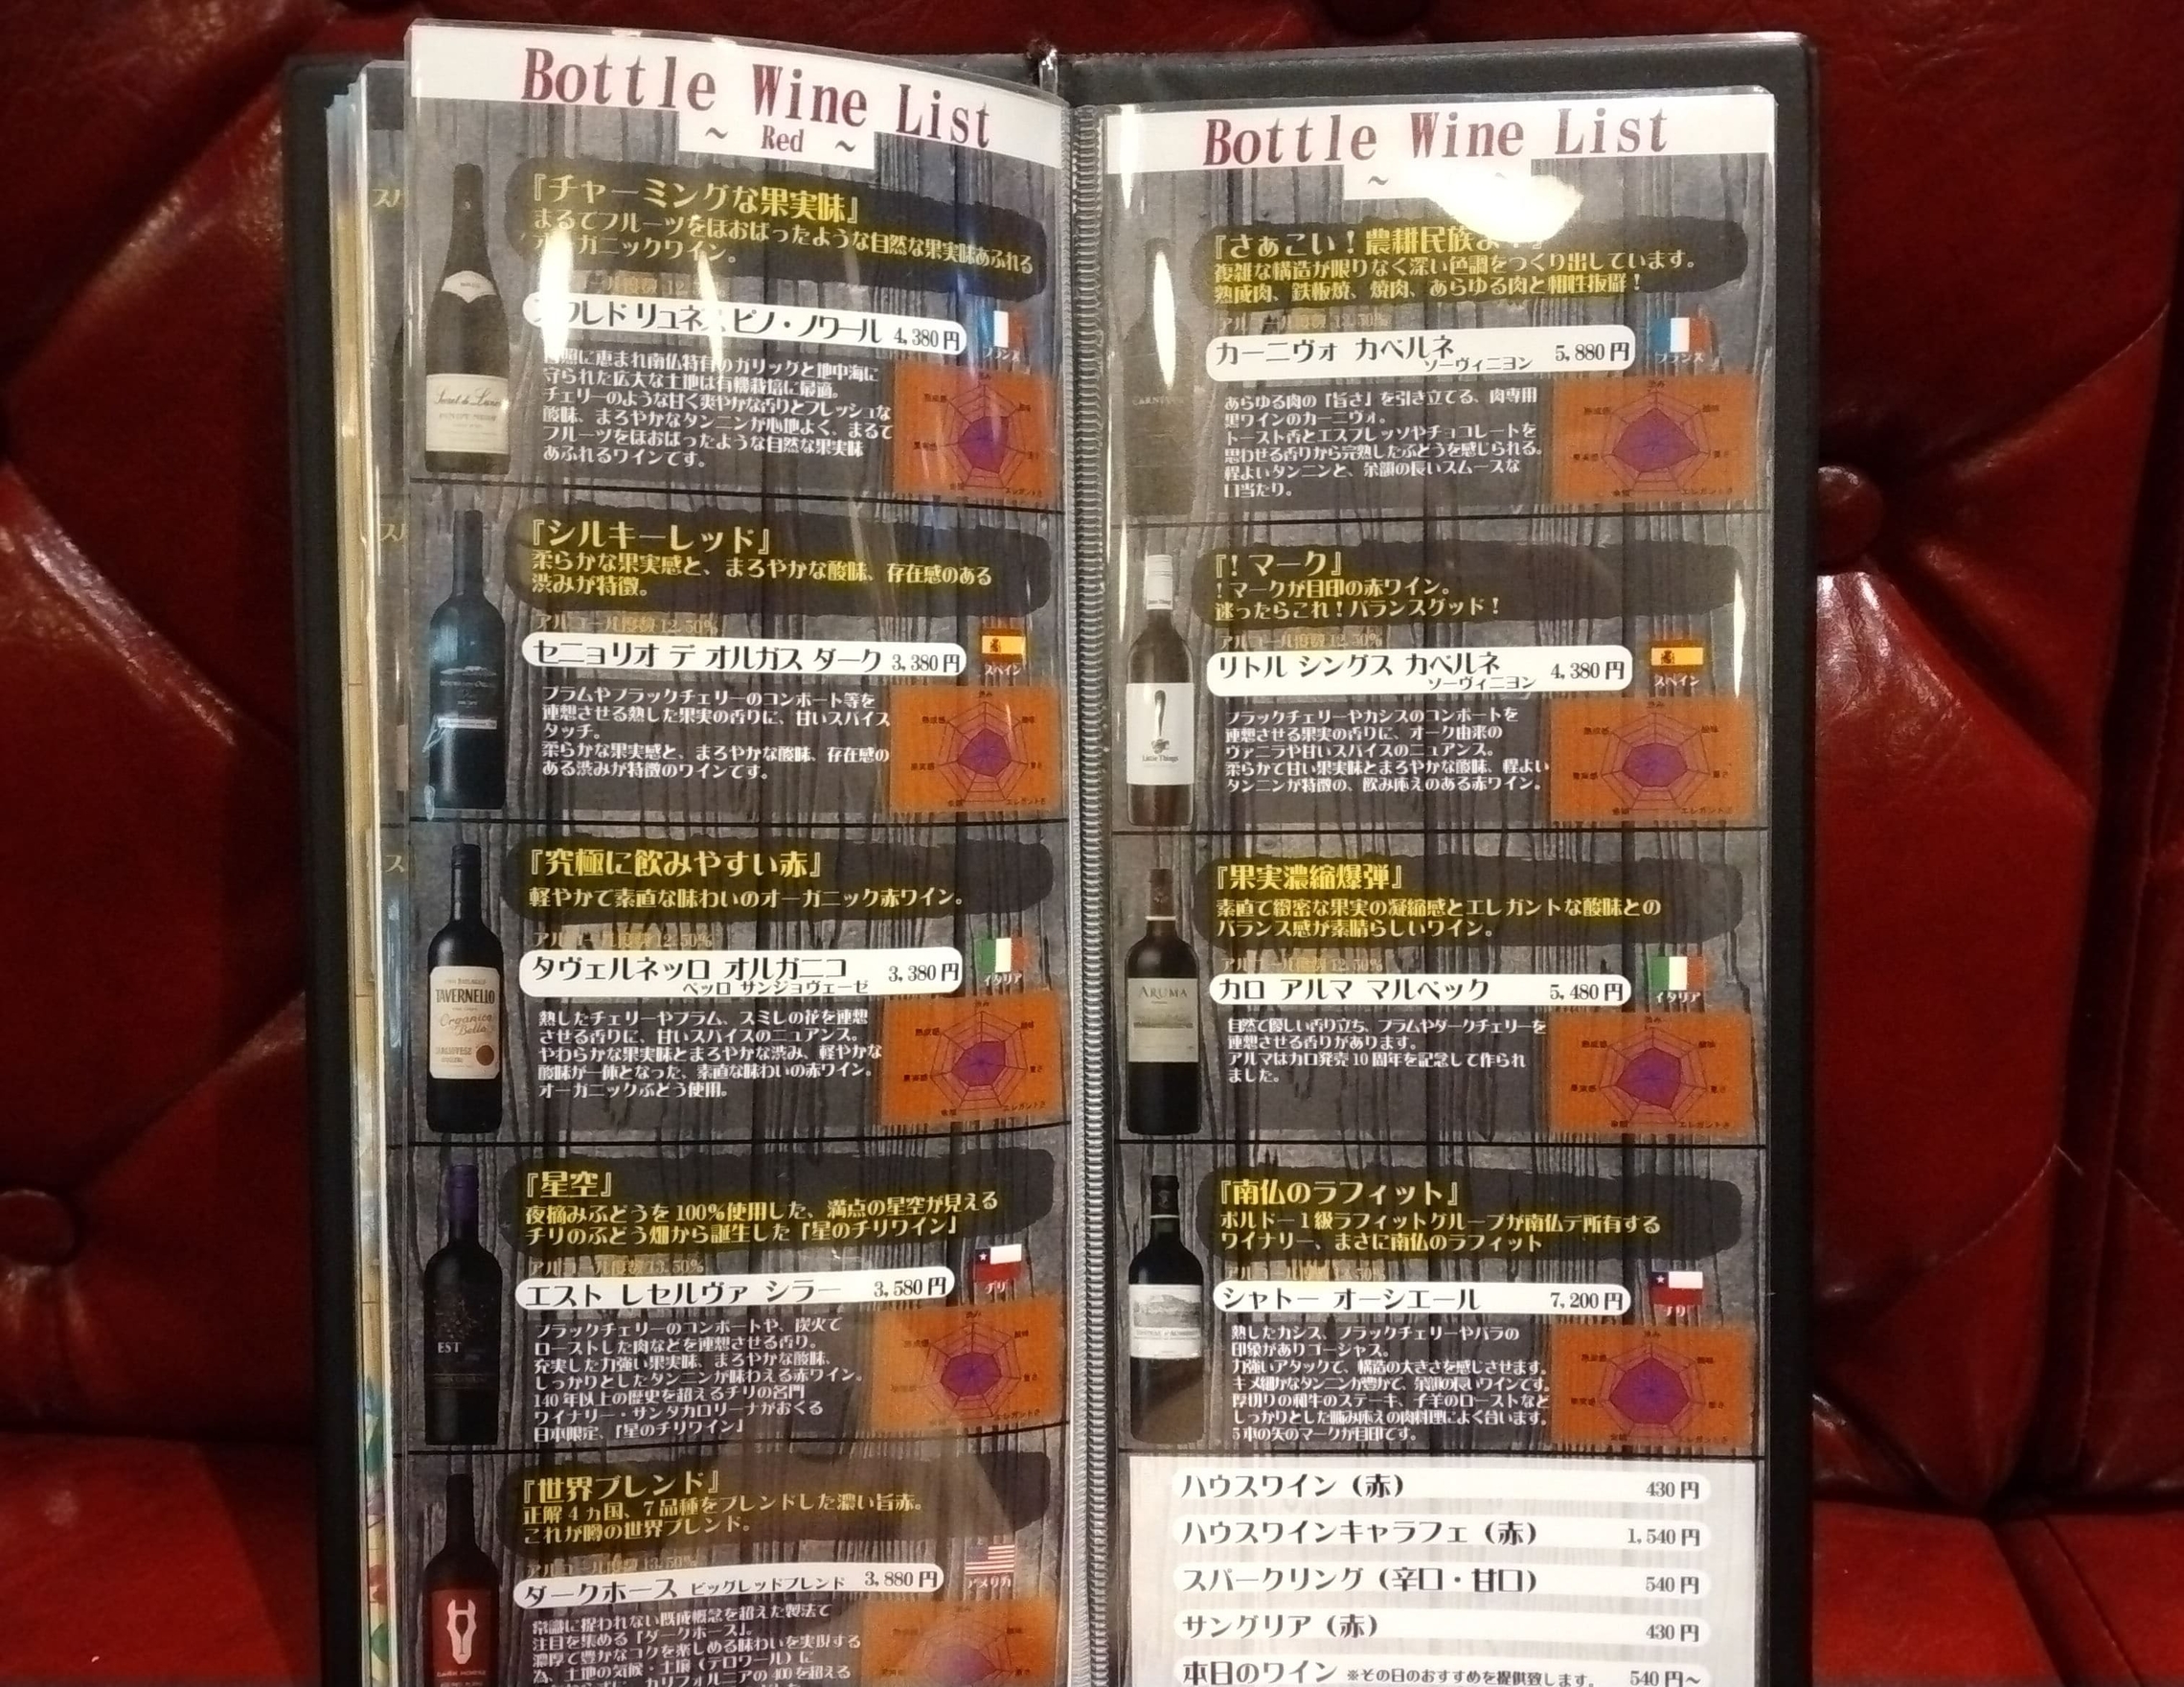 Bottle Wine List
~ Red ~
『チャーミングな果実味』
まるでフルーツをほおばったような自然な果実味あふれる
オーガニックワイン。
ピノ・ノワール 4,380円
フランス
恵まれ南仏特有のガリッグと地中海に
守られた広大な土地は有機栽培に最適。
チェリーのような甘く爽やかな香りとフレッシュな
酸味、まろやかなタンニンが心地よく、まるで
フルーツをほおばったような自然な果実味
あふれるワインです。
『シルキーレッド』
柔らかな果実感と、まろやかな酸味、存在感のある
渋みが特徴。
アルコール度数 12.50%
セニョリオ デ オルガス ダーク 3,380円
スペイン
プラムやブラックチェリーのコンポート等を
連想させる熟した果実の香りに、甘いスパイス
タッチ。
柔らかな果実感と、まろやかな酸味、存在感の
ある渋みが特徴のワインです。
『究極に飲みやすい赤』
軽やかで素直な味わいのオーガニック赤ワイン。
アルコール度数 12.50%
タヴェルネッロ オルガニコ 3,380円
ベッロ サンジョヴェーゼ
イタリア
TAVERNELLO
Organico
熟したチェリーやプラム、スミレの花を連想
させる香りに、甘いスパイスのニュアンス。
やわらかな果実味とまろやかな渋み、軽やかな
酸味が一体となった、素直な味わいの赤ワイン。
オーガニックぶどう使用。
『星空』
夜摘みぶどうを100%使用した、満点の星空が見える
チリのぶどう畑から誕生した「星のチリワイン」
アルコール度数 13.50%
エスト レセルヴァ シラー 3,580円
チリ
EST
ブラックチェリーのコンポートや、炭火で
ローストした肉などを連想させる香り。
充実した力強い果実味、まろやかな酸味、
しっかりとしたタンニンが味わえる赤ワイン。
140年以上の歴史を超えるチリの名門
ワイナリー・サンタカロリーナがおくる
日本限定、「星のチリワイン」
『世界ブレンド』
正解4カ国、7品種をブレンドした濃い旨赤。
これが噂の世界ブレンド。
アルコール度数 13.50%
ダークホース ビッグレッドブレンド 3,880円
アメリカ
常識に捉われない既成概念を超えた製法で
注目を集める「ダークホース」。
濃厚で豊かなコクを楽しめる味わいを実現する
為、土地の気候・土壌(テロワール)に
カリフォルニアの400を超える
Bottle Wine List
『さぁこい!農耕民族よ
複雑な構造が限りなく深い色調をつくり出しています。
熟成肉、鉄板焼、焼肉、あらゆる肉と相性抜群!
カーニヴォ カベルネ 5,880円
ソーヴィニヨン
フランス
あらゆる肉の「旨さ」を引き立てる、肉専用
黒ワインのカーニヴォ。
トースト香とエスプレッソやチョコレートを
思わせる香りから完熟したぶどうを感じられる。
程よいタンニンと、余韻の長いスムースな
口当たり。
『!マーク』
!マークが目印の赤ワイン。
迷ったらこれ!バランスグッド!
アルコール度数 12.50%
リトル シングス カベルネ 4,380円
ソーヴィニヨン
スペイン
Little Things
ブラックチェリーやカシスのコンポートを
連想させる果実の香りに、オーク由来の
ヴァニラや甘いスパイスのニュアンス。
柔らかで甘い果実味とまろやかな酸味、程よい
タンニンが特徴の、飲み応えのある赤ワイン。
『果実濃縮爆弾』
素直で緻密な果実の凝縮感とエレガントな酸味との
バランス感が素晴らしいワイン。
アルコール度数 12.50%
カロ アルマ マルベック 5,480円
イタリア
ARUMA
自然で優しい香り立ち、プラムやダークチェリーを
連想させる香りがあります。
アルマはカロ発売10周年を記念して作られ
ました。
『南仏のラフィット』
ボルドー1級ラフィットグループが南仏デ所有する
ワイナリー、まさに南仏のラフィット
シャトー オーシエール 7,200円
チリ
熟したカシス、ブラックチェリーやバラの
印象がありゴージャス。
力強いアタックで、構造の大きさを感じさせます。
キメ細かなタンニンが豊かで、余韻の長いワインです。
厚切りの和牛のステーキ、子羊のローストなど
しっかりとした噛み応えの肉料理によく合います。
5本の矢のマークが目印です。
ハウスワイン(赤) 430円
ハウスワインキャラフェ(赤) 1,540円
スパークリング(辛口・甘口) 540円
サングリア(赤) 430円
本日のワイン ※その日のおすすめを提供致します。 540円~